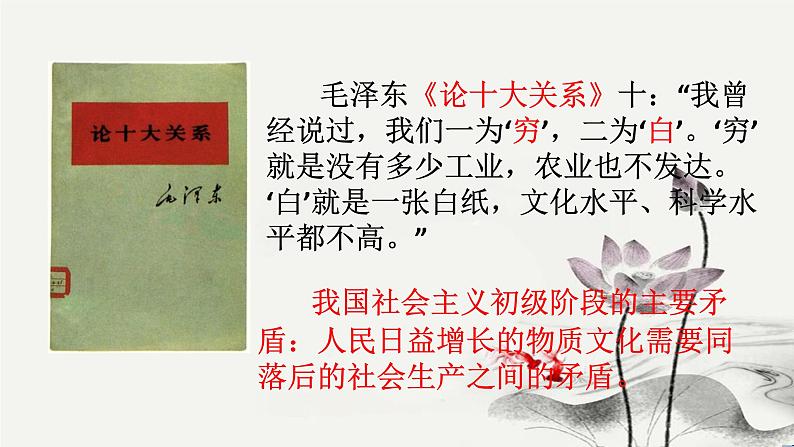 论十大关系
毛泽东
毛泽东《论十大关系》十：“我曾
经说过，我们一为‘穷’，二为‘白’。‘穷’
就是没有多少工业，农业也不发达。
‘白’就是一张白纸，文化水平、科学水
平都不高。”
我国社会主义初级阶段的主要矛
盾：人民日益增长的物质文化需要同
落后的社会生产之间的矛盾。